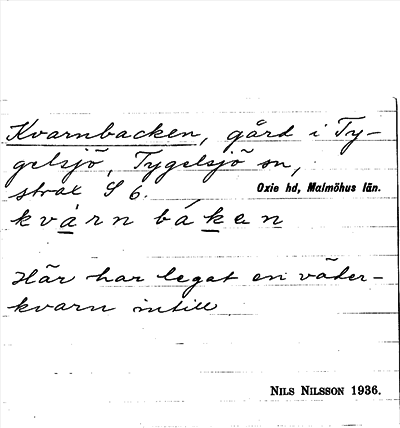 Kvarnbacken, gård i Ty-
gelsjö, Tygelsjö sn,
strax S 6. Oxie hd, Malmöhus län.
kvàrn báken
Här har legat en väder-
kvarn intill
NILS NILSSON 1936.